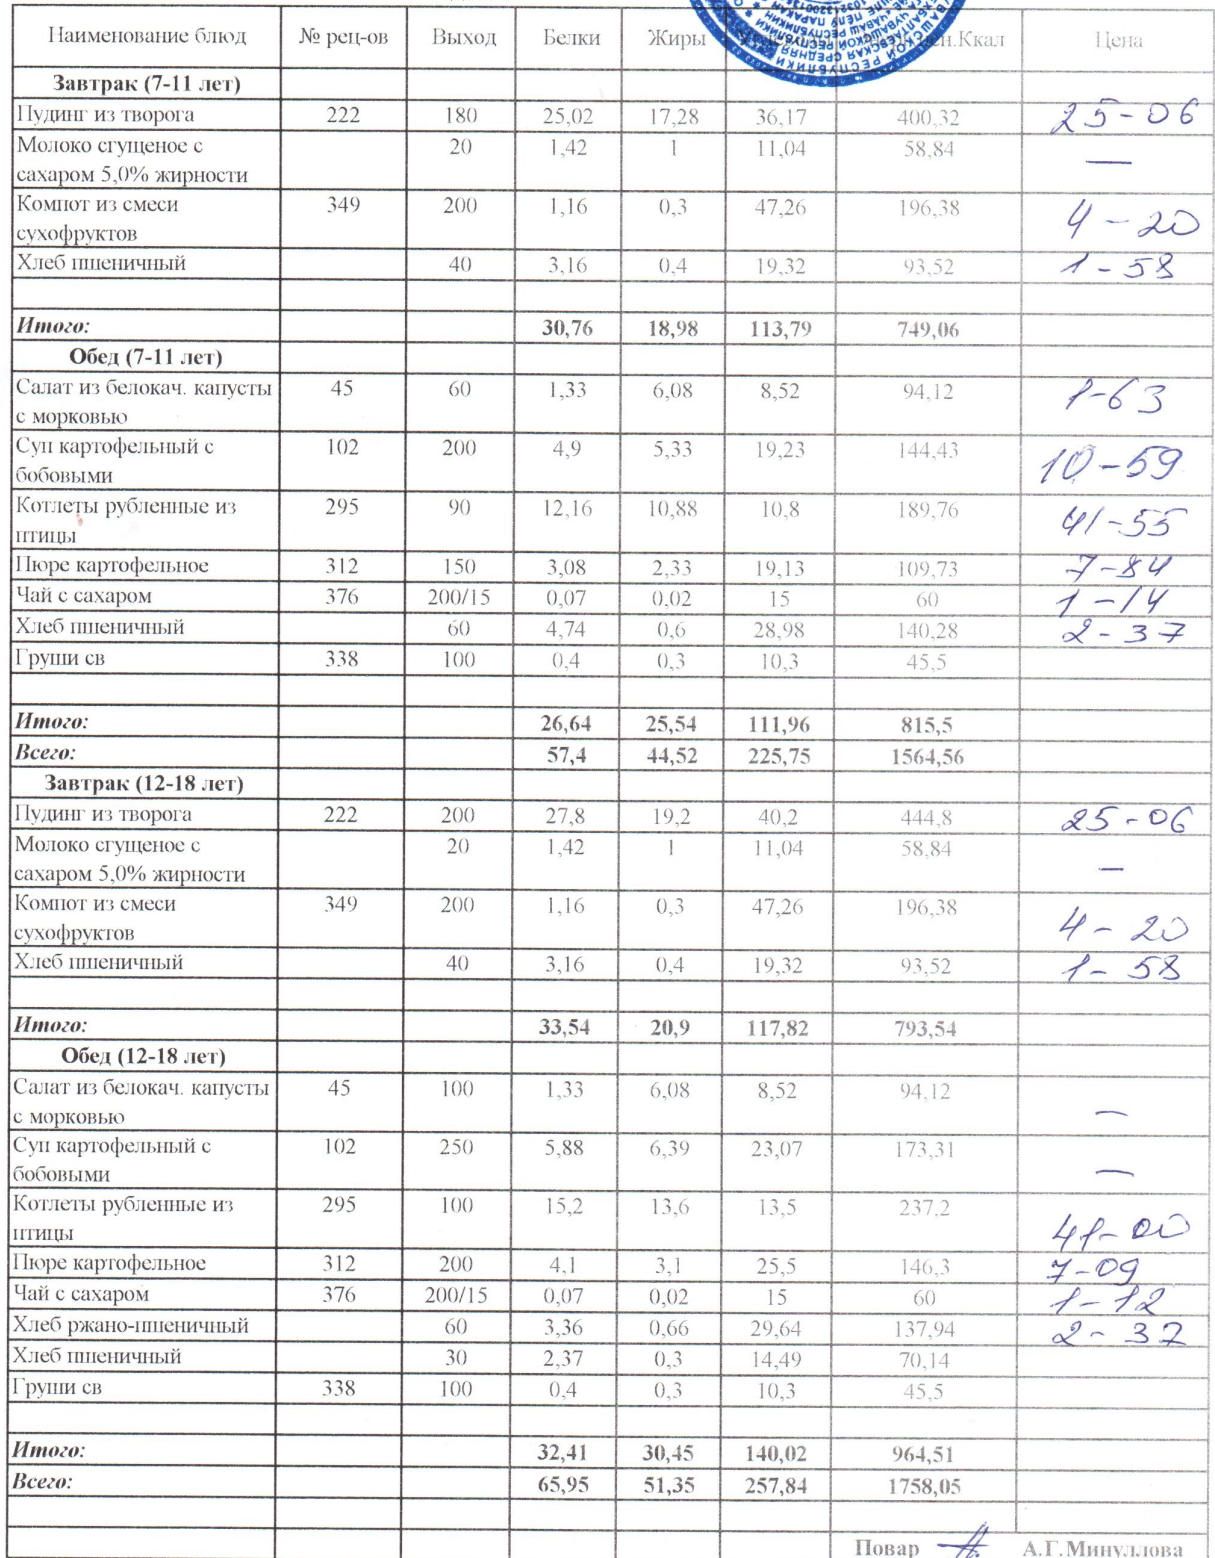 Наименование блюд № рец-ов Выход Белки Жиры Ккал Цена
Завтрак (7-11 лет)
Пудинг из творога 222 180 25,02 17,28 36,17 400,32 25-06
Молоко сгущеное с
сахаром 5,0% жирности 20 1,42 1 11,04 58,84 —
Компот из смеси
сухофруктов 349 200 1,16 0,3 47,26 196,38 4-20
Хлеб пшеничный 40 3,16 0,4 19,32 93,52 1-58
Итого: 30,76 18,98 113,79 749,06
Обед (7-11 лет)
Салат из белокач. капусты
с морковью 45 60 1,33 6,08 8,52 94,12 1-63
Суп картофельный с
бобовыми 102 200 4,9 5,33 19,23 144,43 10-59
Котлеты рубленные из
птицы 295 90 12,16 10,88 10,8 189,76 41-55
Пюре картофельное 312 150 3,08 2,33 19,13 109,73 7-84
Чай с сахаром 376 200/15 0,07 0,02 15 60 1-14
Хлеб пшеничный 60 4,74 0,6 28,98 140,28 2-37
Груши св 338 100 0,4 0,3 10,3 45,5
Итого: 26,64 25,54 111,96 815,5
Всего: 57,4 44,52 225,75 1564,56
Завтрак (12-18 лет)
Пудинг из творога 222 200 27,8 19,2 40,2 444,8 25-06
Молоко сгущеное с
сахаром 5,0% жирности 20 1,42 1 11,04 58,84 —
Компот из смеси
сухофруктов 349 200 1,16 0,3 47,26 196,38 4-20
Хлеб пшеничный 40 3,16 0,4 19,32 93,52 1-58
Итого: 33,54 20,9 117,82 793,54
Обед (12-18 лет)
Салат из белокач. капусты
с морковью 45 100 1,33 6,08 8,52 94,12 —
Суп картофельный с
бобовыми 102 250 5,88 6,39 23,07 173,31 —
Котлеты рубленные из
птицы 295 100 15,2 13,6 13,5 237,2 41-00
Пюре картофельное 312 200 4,1 3,1 25,5 146,3 7-09
Чай с сахаром 376 200/15 0,07 0,02 15 60 1-12
Хлеб ржано-пшеничный 60 3,36 0,66 29,64 137,94 2-37
Хлеб пшеничный 30 2,37 0,3 14,49 70,14
Груши св 338 100 0,4 0,3 10,3 45,5
Итого: 32,41 30,45 140,02 964,51
Всего: 65,95 51,35 257,84 1758,05
Повар А.Г.Минуллова